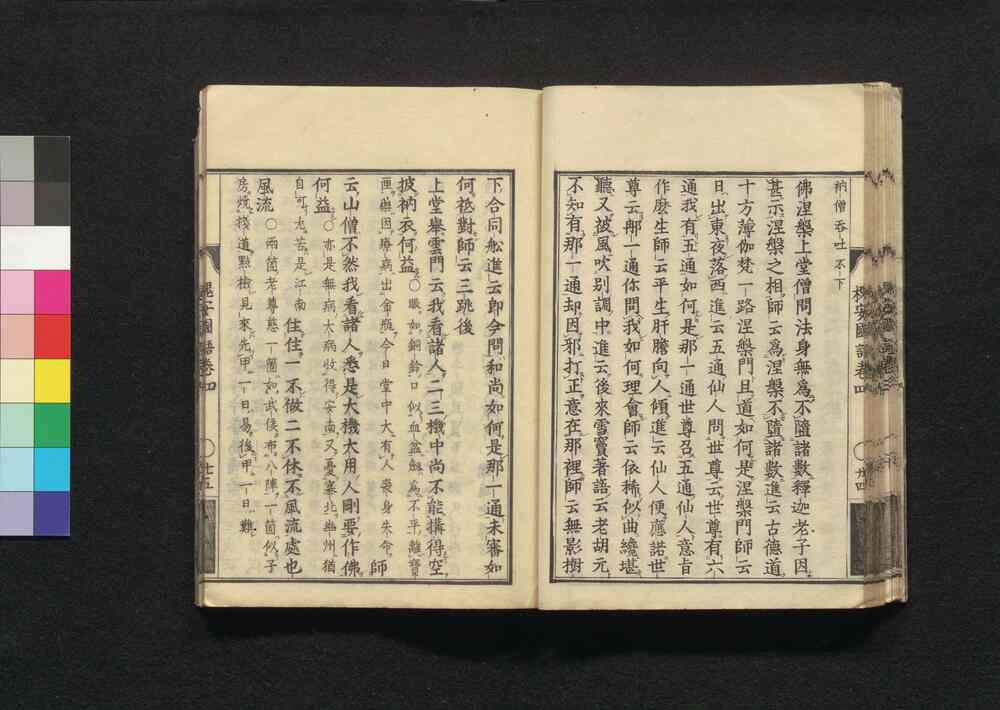 衲僧吞吐不下
佛涅槃上堂僧問法身無爲不墮諸數釋迦老子因
甚示涅槃之相師云爲涅槃不墮諸數進云古德道
十方薄伽梵一路涅槃門且道如何是涅槃門師云
日出東夜落西進云五通仙人問世尊云世尊有六
通我有五通如何是那一通世尊召五通仙人意旨
作麼生師云平生肝膽向人傾進云仙人便應諾世
尊云那一通你問我如何理會師云依稀似曲纔堪
聽又被風吹別調中進云後來雪竇著語云老胡元
不知有那一通却因邪打正意在那裡師云無影樹
槐安國語卷四
〇廿四
下合同舩進云卽今問和尚如何是那一通未審如
何祗對師云三跳後
上堂舉雲門云我看諸人二三機中尚不能搆得空
披衲衣何益〇眼如銅鈴口似血盆解爲不平離寶
匣藥因療病出金瓶今日堂中大有人喪身失命師
云山僧不然我看諸人悉是大機大用人剛要作佛
何益〇亦是無病大病收得安南又憂塞北幽州猶
自可尤苦是江南住住一不做二不休不風流處也
風流〇兩箇老尊慈一箇如武侯布八陣一箇似子
房燒棧道點檢見來先甲一日易後甲一日難
槐安國語卷四
〇廿五